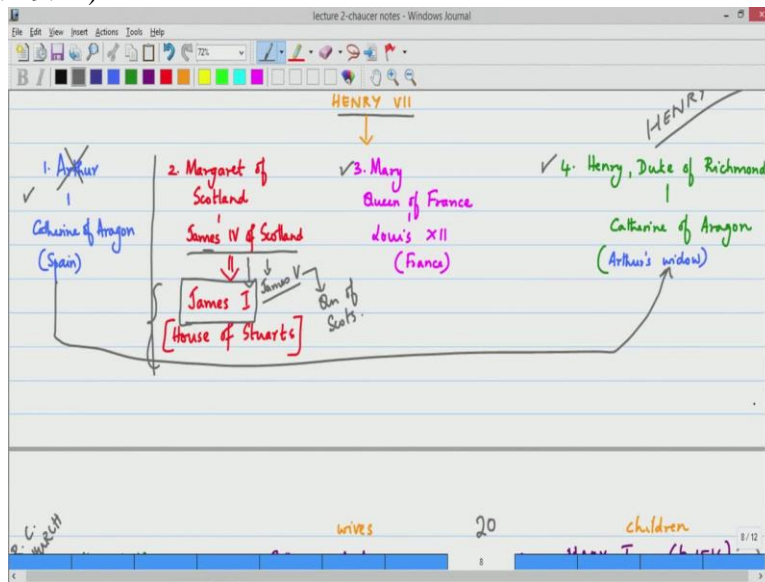 lecture 2-chaucer notes - Windows Journal
File Edit View Insert Actions Tools Help
72%
B I
HENRY VII
HENRY
1. Arthur
Catherine of Aragon
(Spain)
2. Margaret of
Scotland
James IV of Scotland
James I
James V
Qn of
Scots.
[House of Stuarts]
3. Mary
Queen of France
Louis XII
(France)
4. Henry, Duke of Richmond
Catherine of Aragon
(Arthur's widow)
R. C.
CHURCH
wives
20
children
8/12
8